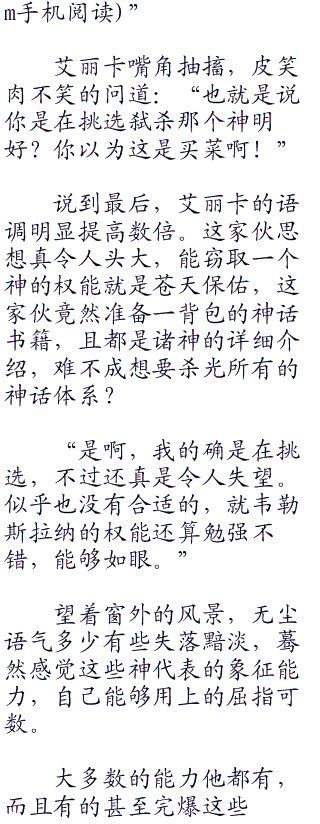 m手机阅读)”
艾丽卡嘴角抽搐，皮笑
肉不笑的问道：“也就是说
你是在挑选弑杀那个神明
好？你以为这是买菜啊！”
说到最后，艾丽卡的语
调明显提高数倍。这家伙思
想真令人头大，能窃取一个
神的权能就是苍天保佑，这
家伙竟然准备一背包的神话
书籍，且都是诸神的详细介
绍，难不成想要杀光所有的
神话体系？
“是啊，我的确是在挑
选，不过还真是令人失望。
似乎也没有合适的，就韦勒
斯拉纳的权能还算勉强不
错，能够如眼。”
望着窗外的风景，无尘
语气多少有些失落黯淡，蓦
然感觉这些神代表的象征能
力，自己能够用上的屈指可
数。
大多数的能力他都有，
而且有的甚至完爆这些